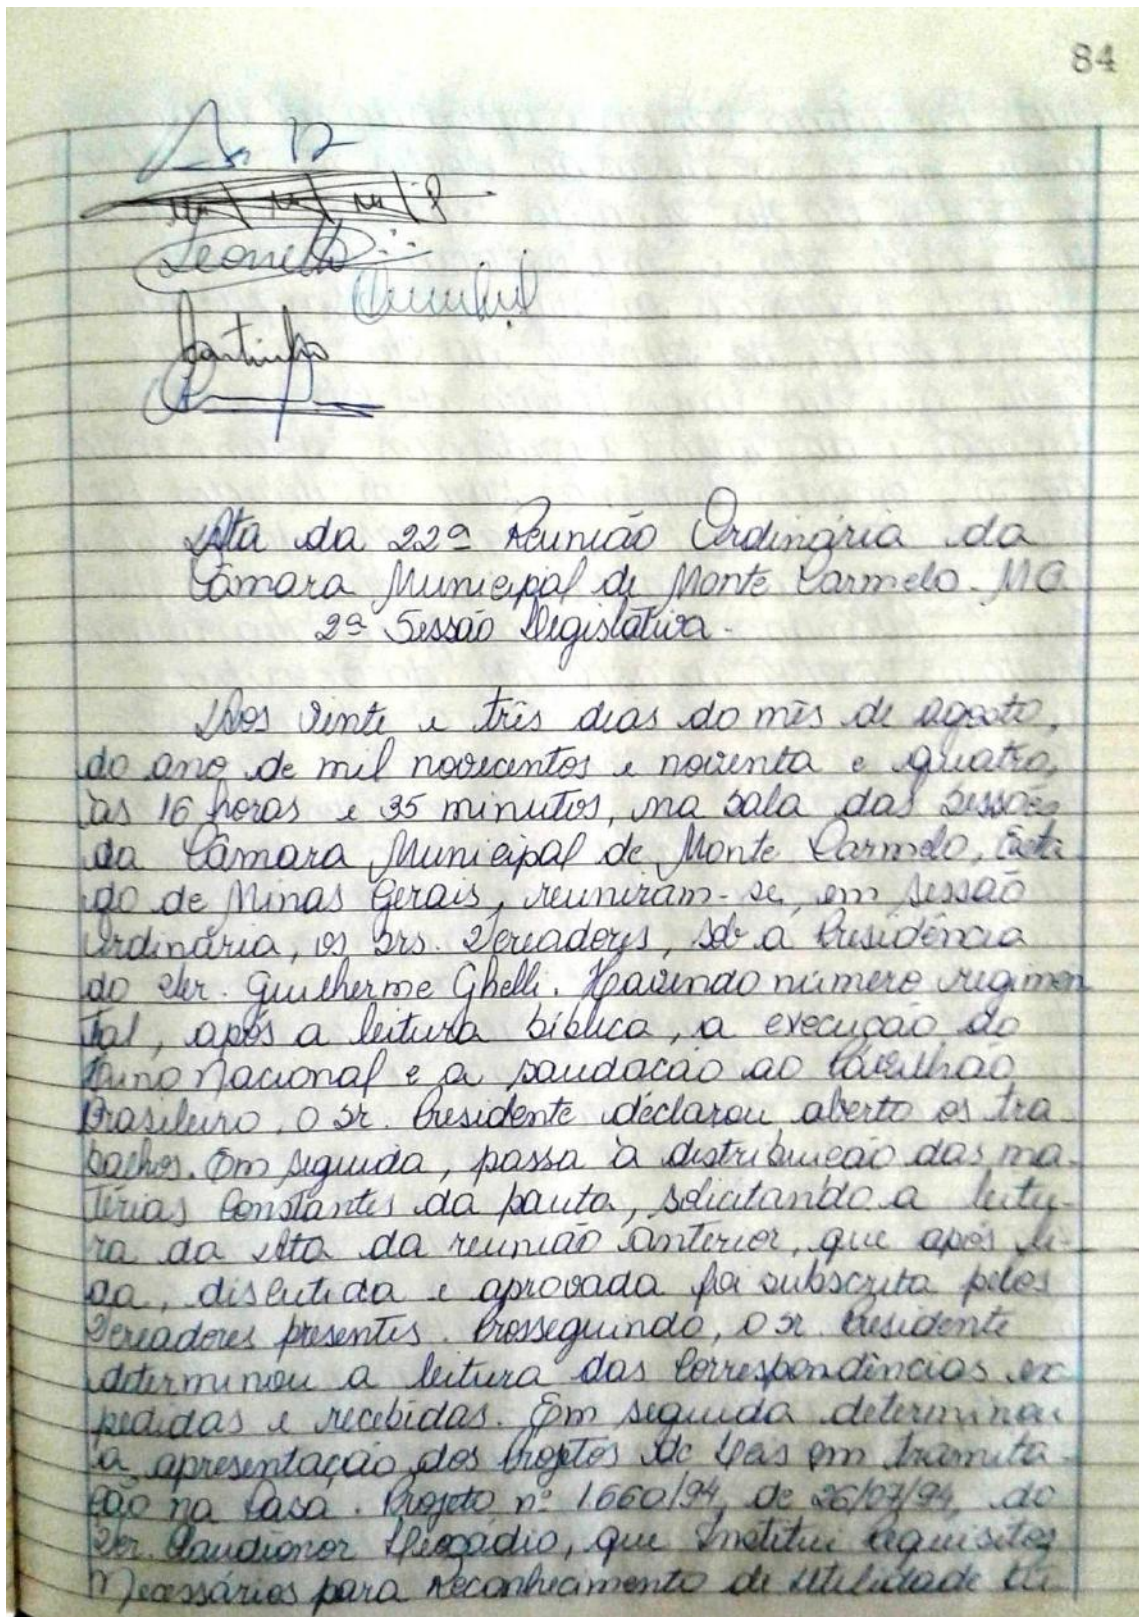 84
Leonelo
Martinho
Ata da 22ª Reunião Ordinária da
Câmara Municipal de Monte Carmelo - MG
2ª Sessão Legislativa -
Aos vinte e três dias do mês de agosto,
do ano de mil novecentos e noventa e quatro,
às 16 horas e 35 minutos, na sala das sessões
da Câmara Municipal de Monte Carmelo, Esta
do de Minas Gerais, reuniram-se, em sessão
Ordinária, os srs. Vereadores, sob a Presidência
do Ver. Guilherme Ghelli. Havendo número regimen
tal, após a leitura bíblica, a execução do
Hino Nacional e a saudação ao Pavilhão
Brasileiro, o sr. Presidente declarou aberto os tra
balhos. Em seguida, passa à distribuição das ma-
térias constantes da pauta, solicitando a leitu-
ra da Ata da reunião anterior, que após li-
da, discutida e aprovada foi subscrita pelos
Vereadores presentes. Prosseguindo, o sr. Presidente
determinou a leitura das Correspondências ex
pedidas e recebidas. Em seguida determinou
a apresentação dos Projetos de Leis em tramita
ção na Casa. Projeto nº 1.660/94, de 26/07/94, do
Ver. Claudionor, que Institui requisitos
Necessários para Reconhecimento de Utilidade